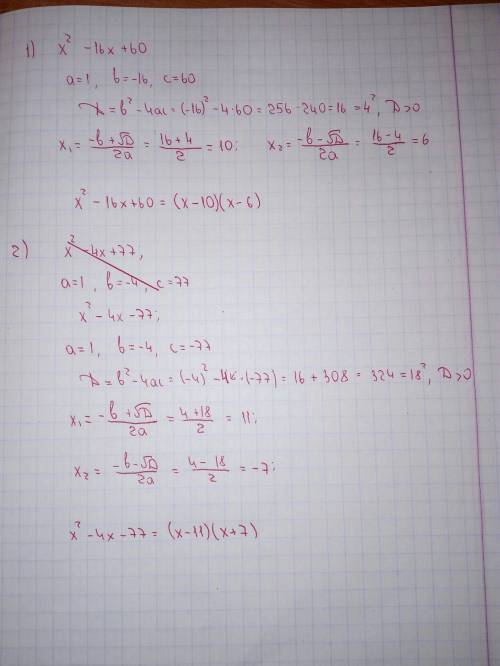 1) x² - 16x + 60
a=1, b=-16, c=60
D = b² - 4ac = (-16)² - 4·60 = 256 - 240 = 16 = 4², D>0
x₁ = (-b+√D)/2a = (16+4)/2 = 10; x₂ = (-b-√D)/2a = (16-4)/2 = 6
x² - 16x + 60 = (x-10)(x-6)
2) x² - 4x + 77,
a=1, b=-4, c=77
x² - 4x - 77;
a=1, b=-4, c=-77
D = b² - 4ac = (-4)² - 4·(-77) = 16 + 308 = 324 = 18², D>0
x₁ = (-b+√D)/2a = (4+18)/2 = 11;
x₂ = (-b-√D)/2a = (4-18)/2 = -7;
x² - 4x - 77 = (x-11)(x+7)